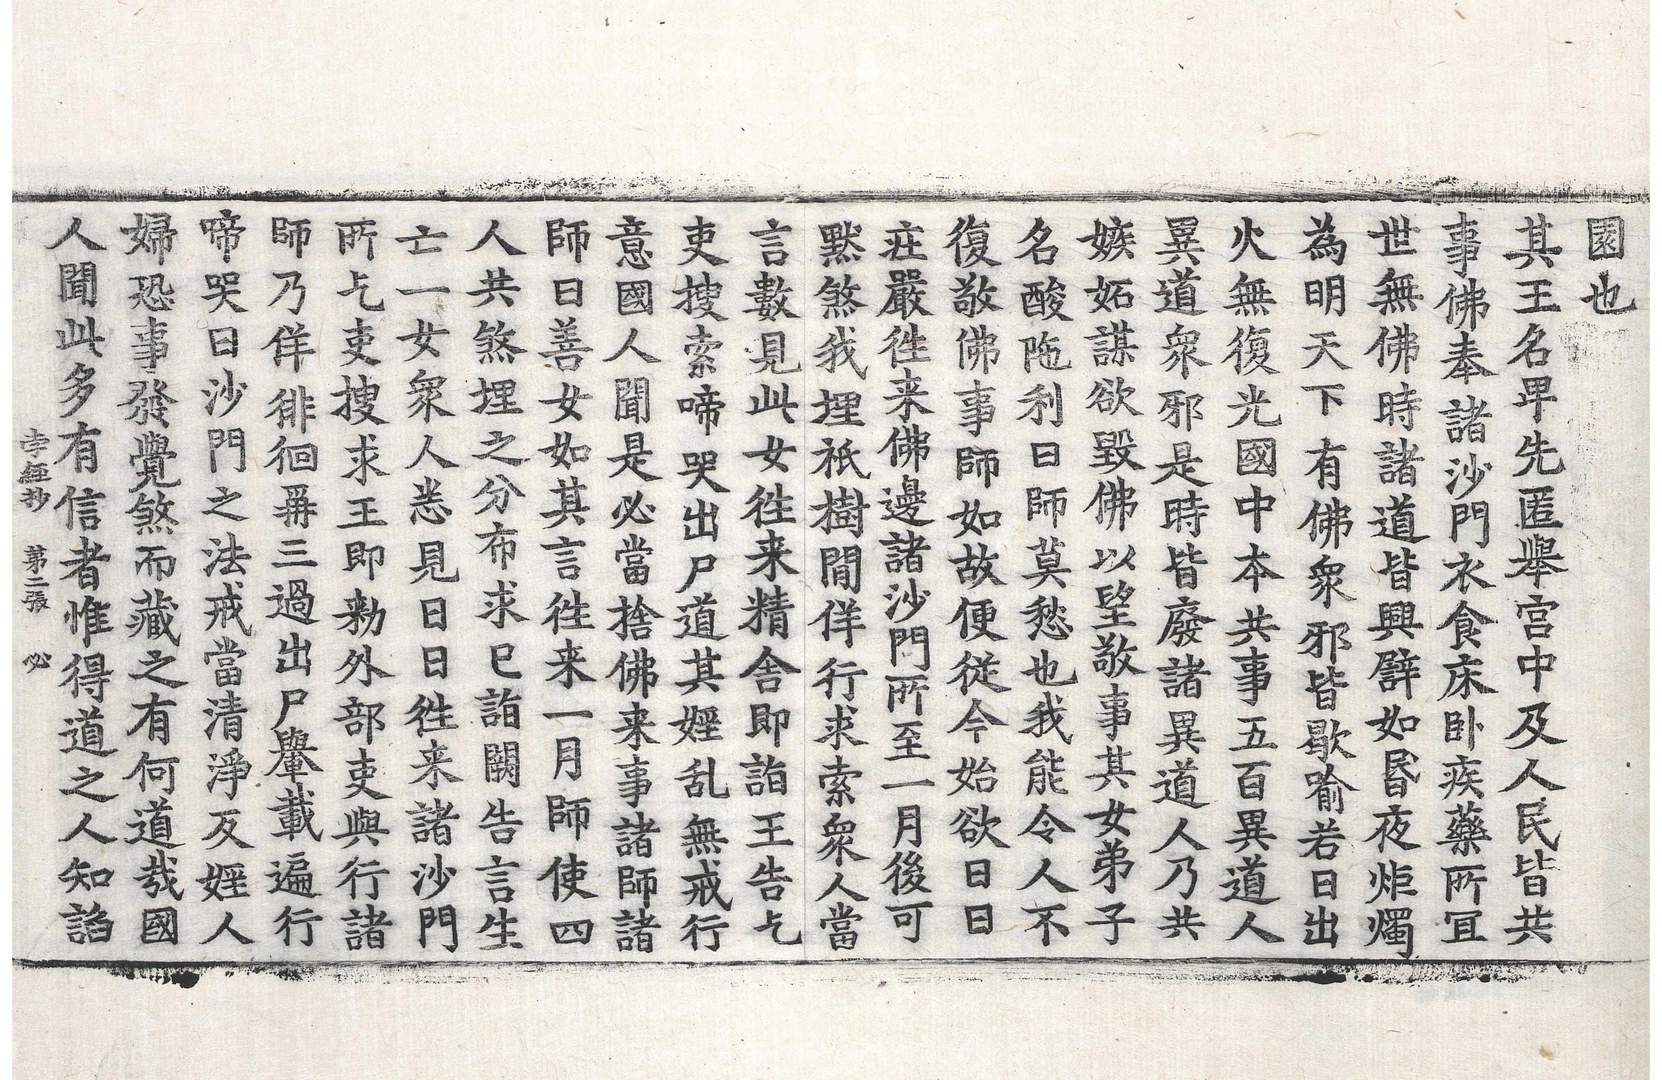 園也
其王名卑先匿舉宮中及人民皆共
事佛奉諸沙門衣食床卧疾藥所宜
世無佛時諸道皆興譬如昬夜炬燭
為明天下有佛衆邪皆歇喻若日出
火無復光國中本共事五百異道人
異道衆邪是時皆廢諸異道人乃共
嫉妬謀欲毀佛以望敬事其女弟子
名酸陁利曰師莫愁也我能令人不
復敬佛事師如故便從今始欲日日
莊嚴徃来佛邊諸沙門所至一月後可
默煞我埋祇樹閒佯行求索衆人當
言數見此女徃来精舍即詣王告乞
吏搜索啼哭出尸道其婬乱無戒行
意國人聞是必當捨佛来事諸師諸
師曰善女如其言徃来一月師使四
人共煞埋之分布求已詣闕告言生
亡一女衆人悉見日日徃来諸沙門
所乞吏搜求王即勑外部吏與行諸
師乃佯徘徊再三過出尸轝載遍行
啼哭曰沙門之法戒當清淨反婬人
婦恐事發覺煞而藏之有何道㢤國
人聞此多有信者惟得道之人知諂
孛經抄　第二張　必